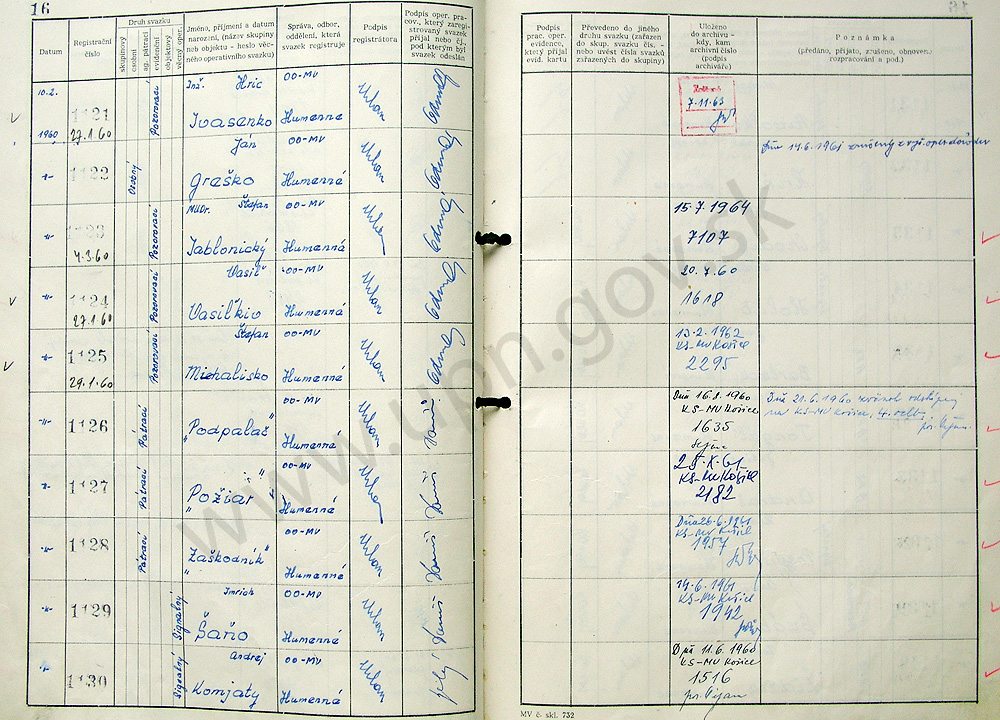 16
Datum
Registrační číslo
Druh svazku
skupinový
osobní
ag. pátrací
evidenční
objektový
Jméno, příjmení a datum narození, (název skupiny neb objektu - heslo věcného operativního svazku)
Správa, odbor, oddělení, která svazek registruje
Podpis registrátora
Podpis oper. pracov., který zaregistrovaný svazek přijal nebo čj., pod kterým byl svazek odeslán
Podpis prac. oper. evidence, který přijal evid. kartu
Převedeno do jiného druhu svazku (zařazen do skup. svazku čís. - nebo uvést čísla svazků zřízených do skupiny)
Uloženo do archivu - kdy, kam archivní číslo (podpis archiváře)
Poznámka
(předáno, přijato, zrušeno, obnoven. rozpracování a pod.)
10.2. 1960
1121
27.1.60
Pozorovací
Inž. Hric
Ivasenko
OO-MV
Humenné
7.11.63
1122
Osobný
Ján
Greško
OO-MV
Humenné
1123
4.3.60
Pozorovací
MUDr. Štefan
Jablonický
OO-MV
Humenné
15.7.1964
7107
1124
27.1.60
Pozorovací
Vasil
Vasiľkiv
OO-MV
Humenné
20.7.60
1618
1125
29.1.60
Pozorovací
Štefan
Michalisko
OO-MV
Humenné
13.2.1962
KS-MV Košice
2295
1126
Pátrací
„Podpalač"
OO-MV
Humenné
Dňa 16.8.1960
KS-MV Košice
1635
Dňa 21.6.1960
na KS-MV Košice, 4. odd.
1127
Pátrací
„Požiar"
OO-MV
Humenné
25.X.61
KS-MV Košice
2182
1128
Pátrací
„Zaškodník"
OO-MV
Humenné
Dňa 26.6.1961
KS-MV Košice
1957
1129
Signálny
Imrich
Šaňo
OO-MV
Humenné
14.6.1961
KS-MV Košice
1942
1130
Signálný
Andrej
Komjaty
OO-MV
Humenné
Dňa 11.6.1960
KS-MV Košice
1516
MV č. skl. 732
www.upn.gov.sk